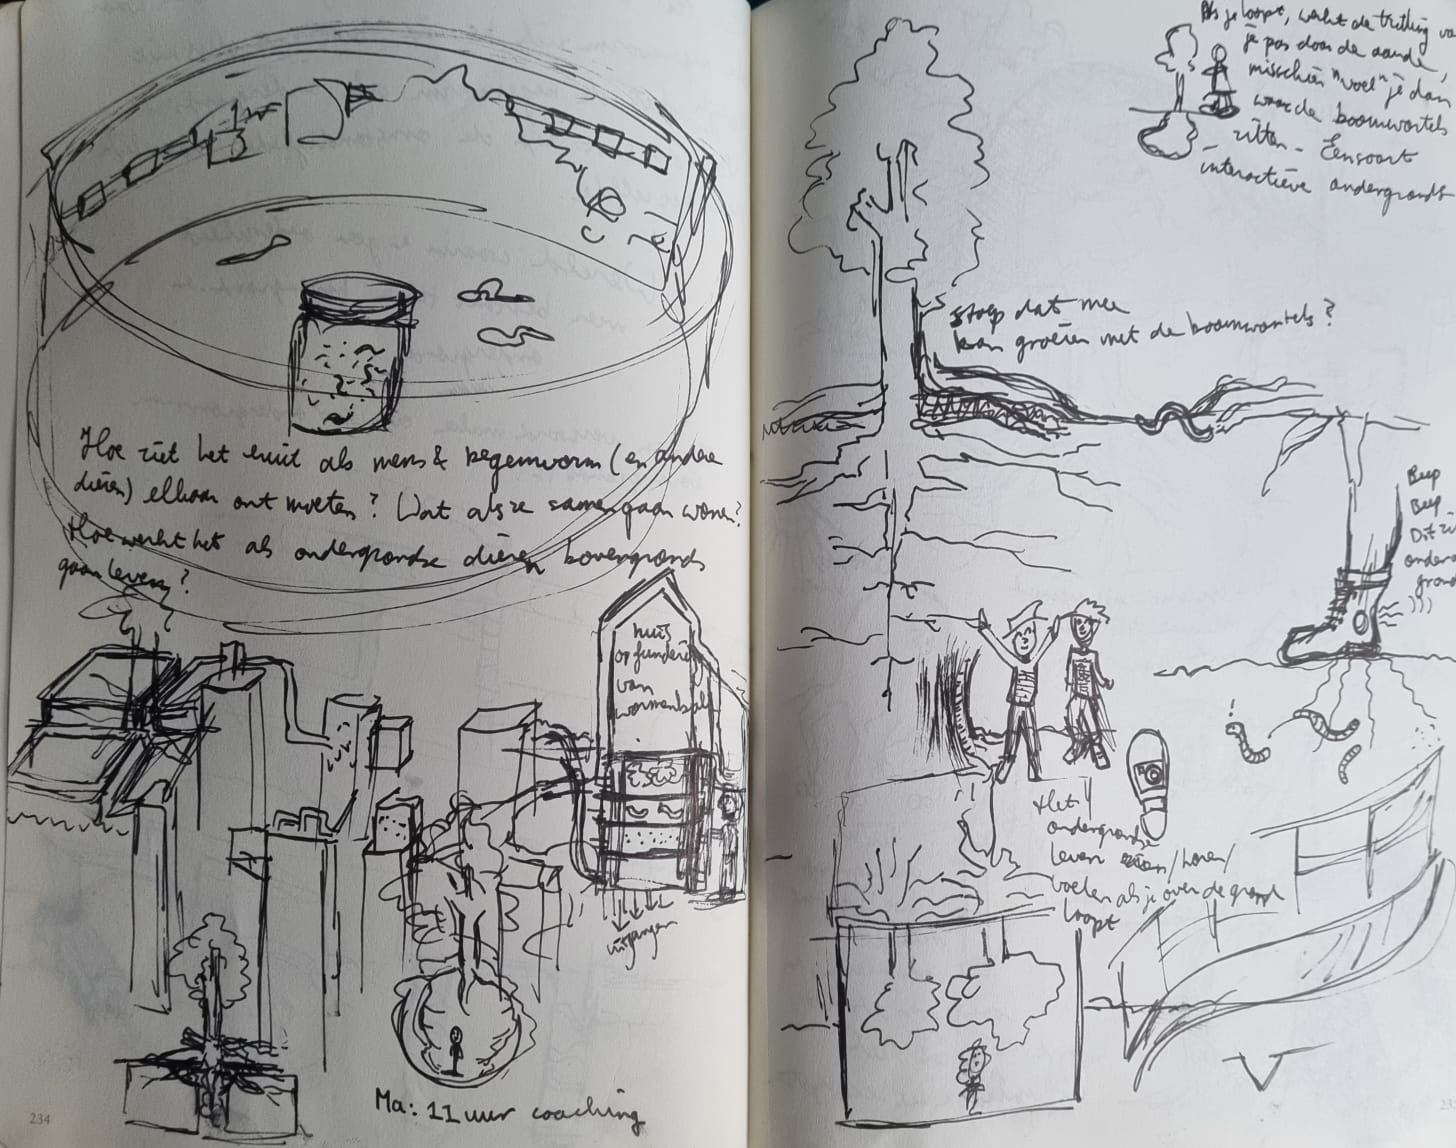 Hoe ziet het eruit als mens & regenworm (en andere
dieren) elkaar ontmoeten? Wat als ze samen gaan wonen?
Hoe werkt het als ondergrondse dieren bovergronds
gaan leven?
huis
op fundering
van
uitgangen
Ma: 11 uur coaching
234
Als je loopt, werkt de trilling va
je pas door de aarde,
misschien "voel" je dan
waar de boomwortels
zitten - Een soort
interactieve ondergronds
stoep dat mee
kan groeien met de boomwortels?
Beep
Beep
Dit
onder
grond
)))
Het
ondergrondse
leven zien/horen/
voelen als je over de grond
loopt